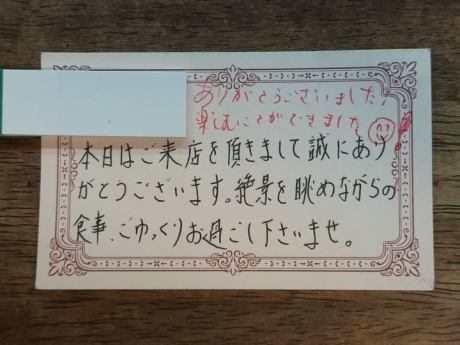 ありがとうございました!
楽しむことができました
本日はご来店を頂きまして誠にあり
がとうございます。絶景を眺めながらの
食事、ごゆっくりお過ごし下さいませ。